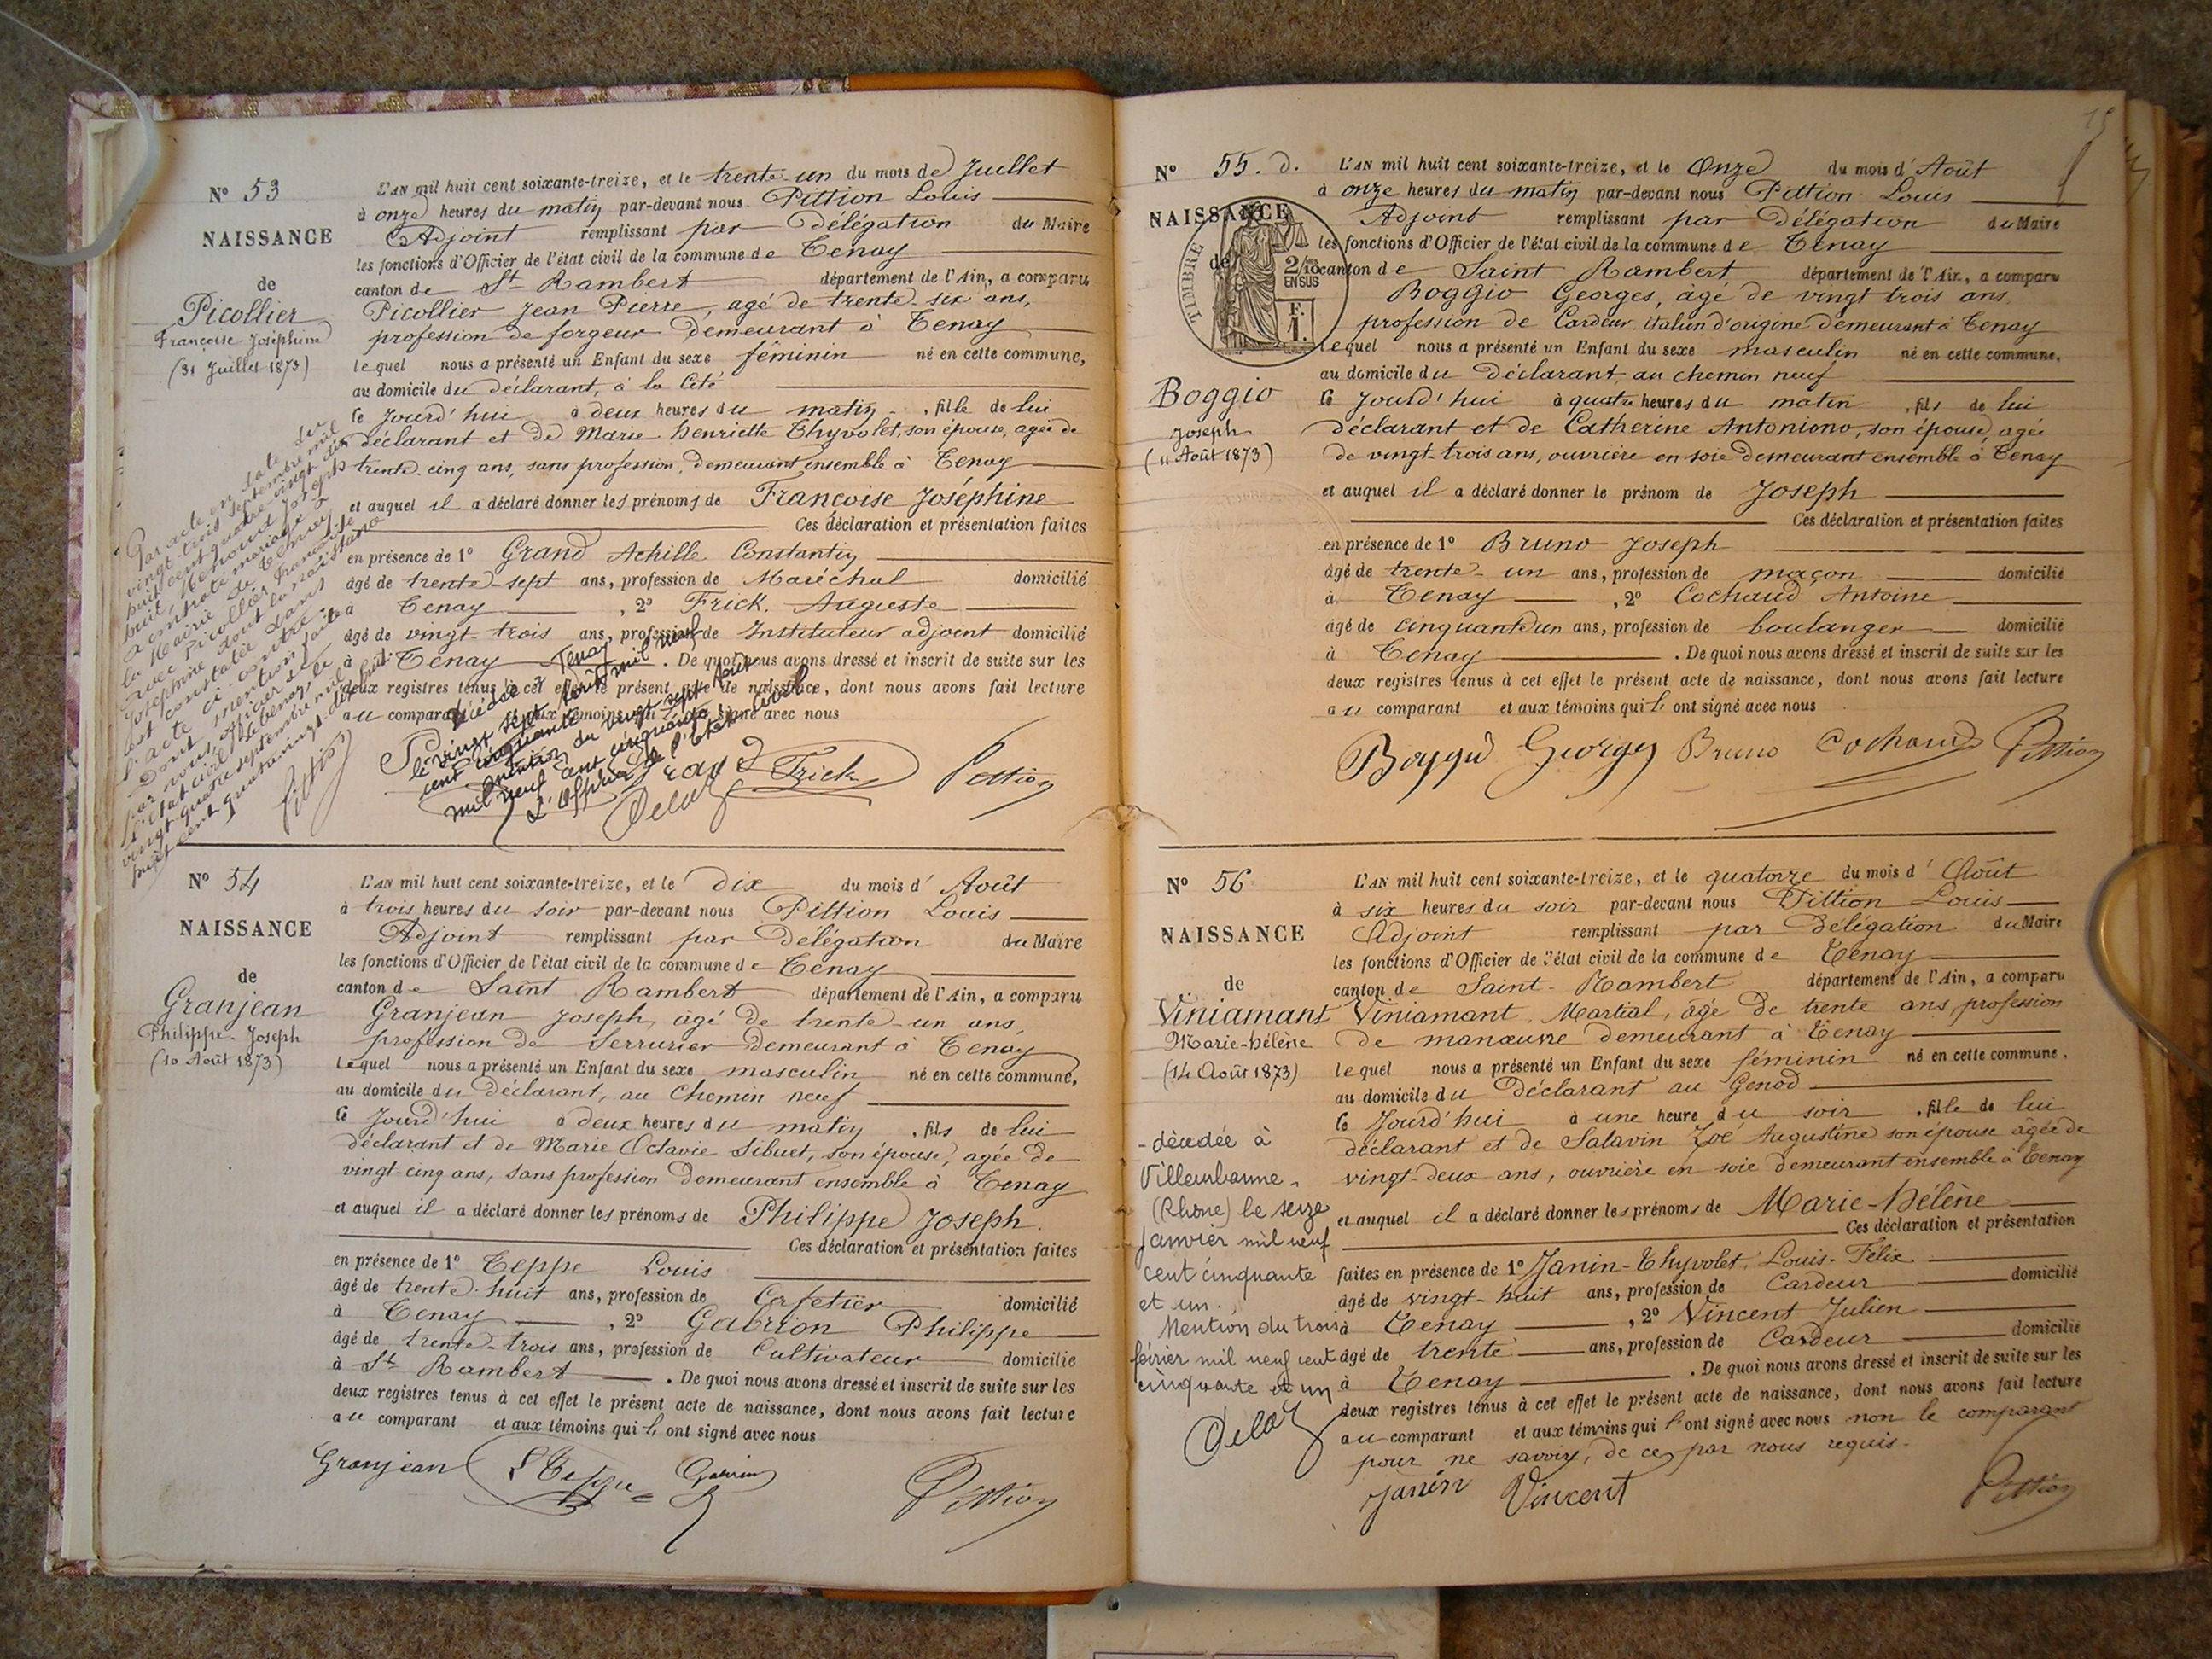 N° 53
NAISSANCE
de
Picollier
Françoise Joséphine
(31 Juillet 1873)
L'AN mil huit cent soixante-treize, et le trente-un du mois de Juillet
à onze heures du matin par-devant nous Pittion Louis
Adjoint remplissant par Délégation du Maire
les fonctions d'Officier de l'état civil de la commune de Tenay
canton de St Rambert département de l'Ain, a comparu
Picollier Jean Pierre, agé de trente-six ans,
profession de forgeur demeurant à Tenay
lequel nous a présenté un Enfant du sexe féminin né en cette commune,
au domicile du déclarant, à la Cité
le jourd'hui à deux heures du matin, fille de lui
déclarant et de Marie Henriette Thyvolet, son épouse, agée de
trente-cinq ans, sans profession, demeurant ensemble à Tenay
et auquel il a déclaré donner les prénoms de Françoise Joséphine
Ces déclaration et présentation faites
en présence de 1° Grand Achille Constantin
âgé de trente-sept ans, profession de Maréchal domicilié
à Tenay, 2° Frick Auguste
âgé de vingt-trois ans, profession de Instituteur adjoint domicilié
à Tenay. De quoi nous avons dressé et inscrit de suite sur les
deux registres tenus à cet effet le présent acte de naissance, dont nous avons fait lecture
au comparant et aux témoins qui ont signé avec nous
Par acte en date du
vingt trois septembre mil
huit cent quatre vingt dix
huit, Joseph
a contracté mariage à
la Mairie de
avec Picollier Françoise
Joséphine dont la naissance
est constatée dans
l'acte ci-contre.
Dont mention faite
par nous, officier de
l'état civil de Tenay, le
vingt-quatre septembre mil
huit cent quatre vingt dix huit.
Pittion
Décédée à Tenay
le vingt sept août mil neuf
cent cinquante
mention du vingt sept août
mil neuf cent cinquante
L'Officier de l'état civil
Delay
Grand Frick Pittion
N° 54
NAISSANCE
de
Granjean
Philippe-Joseph
(10 Août 1873)
L'AN mil huit cent soixante-treize, et le dix du mois d'Août
à trois heures du soir par-devant nous Pittion Louis
Adjoint remplissant par Délégation du Maire
les fonctions d'Officier de l'état civil de la commune de Tenay
canton de Saint Rambert département de l'Ain, a comparu
Granjean Joseph, agé de trente-un ans,
profession de Serrurier demeurant à Tenay
lequel nous a présenté un Enfant du sexe masculin né en cette commune,
au domicile du déclarant, au Chemin neuf
le jourd'hui à deux heures du matin, fils de lui
déclarant et de Marie Octavie Sibuet, son épouse, agée de
vingt-cinq ans, sans profession demeurant ensemble à Tenay
et auquel il a déclaré donner les prénoms de Philippe Joseph.
Ces déclaration et présentation faites
en présence de 1° Teppe Louis
âgé de trente-huit ans, profession de Cafetier domicilié
à Tenay, 2° Gabrion Philippe
âgé de trente-trois ans, profession de Cultivateur domicilié
à St Rambert. De quoi nous avons dressé et inscrit de suite sur les
deux registres tenus à cet effet le présent acte de naissance, dont nous avons fait lecture
au comparant et aux témoins qui ont signé avec nous
Granjean L Teppe Gabrion Pittion
N° 55. d.
NAISSANCE
de
TIMBRE
2/10 EN SUS
F. 1.
Boggio
Joseph
(11 Août 1873)
L'AN mil huit cent soixante-treize, et le Onze du mois d'Août
à onze heures du matin par-devant nous Pittion Louis
Adjoint remplissant par Délégation du Maire
les fonctions d'Officier de l'état civil de la commune de Tenay
canton de Saint Rambert département de l'Ain, a comparu
Boggio Georges, âgé de vingt trois ans,
profession de Cardeur italien d'origine demeurant à Tenay
lequel nous a présenté un Enfant du sexe masculin né en cette commune,
au domicile du déclarant, au chemin neuf
le jourd'hui à quatre heures du matin, fils de lui
déclarant et de Catherine Antoniono, son épouse, agée
de vingt-trois ans, ouvrière en soie demeurant ensemble à Tenay
et auquel il a déclaré donner le prénom de Joseph
Ces déclaration et présentation faites
en présence de 1° Bruno Joseph
âgé de trente-un ans, profession de maçon domicilié
à Tenay, 2° Cochaud Antoine
âgé de cinquante un ans, profession de boulanger domicilié
à Tenay. De quoi nous avons dressé et inscrit de suite sur les
deux registres tenus à cet effet le présent acte de naissance, dont nous avons fait lecture
au comparant et aux témoins qui ont signé avec nous
Boggio Georges Bruno Cochaud Pittion
N° 56
NAISSANCE
de
Viniamant
Marie-Hélène
(14 Août 1873)
L'AN mil huit cent soixante-treize, et le quatorze du mois d'Août
à six heures du soir par-devant nous Pittion Louis
Adjoint remplissant par Délégation du Maire
les fonctions d'Officier de l'état civil de la commune de Tenay
canton de Saint-Rambert département de l'Ain, a comparu
Viniamant Martial, âgé de trente ans, profession
de manœuvre demeurant à Tenay
lequel nous a présenté un Enfant du sexe féminin né en cette commune,
au domicile du déclarant au Genod
le jourd'hui à une heure du soir, fille de lui
déclarant et de Salavin Zoé Augustine son épouse agée de
vingt-deux ans, ouvrière en soie demeurant ensemble à Tenay
et auquel il a déclaré donner les prénoms de Marie-Hélène
Ces déclaration et présentation
faites en présence de 1° Janin-Thyvolet, Louis-Félix
âgé de vingt-huit ans, profession de Cardeur domicilié
à Tenay, 2° Vincent Julien
âgé de trente ans, profession de Cardeur domicilié
à Tenay. De quoi nous avons dressé et inscrit de suite sur les
deux registres tenus à cet effet le présent acte de naissance, dont nous avons fait lecture
au comparant et aux témoins qui ont signé avec nous non le comparant
pour ne savoir, de ce par nous requis.
Janin Vincent Pittion
-décédée à
Villeurbanne
(Rhône) le seize
janvier mil neuf
cent cinquante
et un.
Mention du trois
février mil neuf cent
cinquante et un
Delay